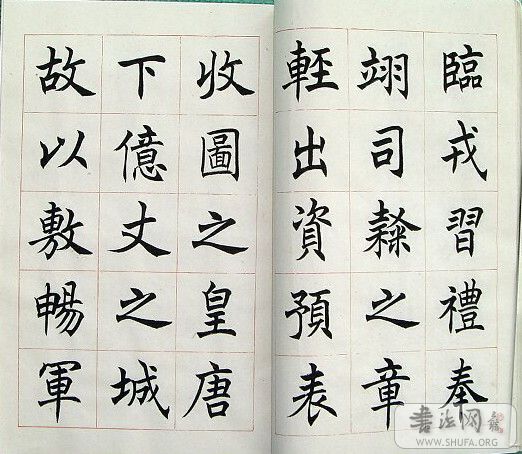 臨戎習禮奉
翊司隸之章
輕出資預表
收圖之皇唐
下億丈之城
故以敷暢軍
书法网
WWW.SHUFA.ORG